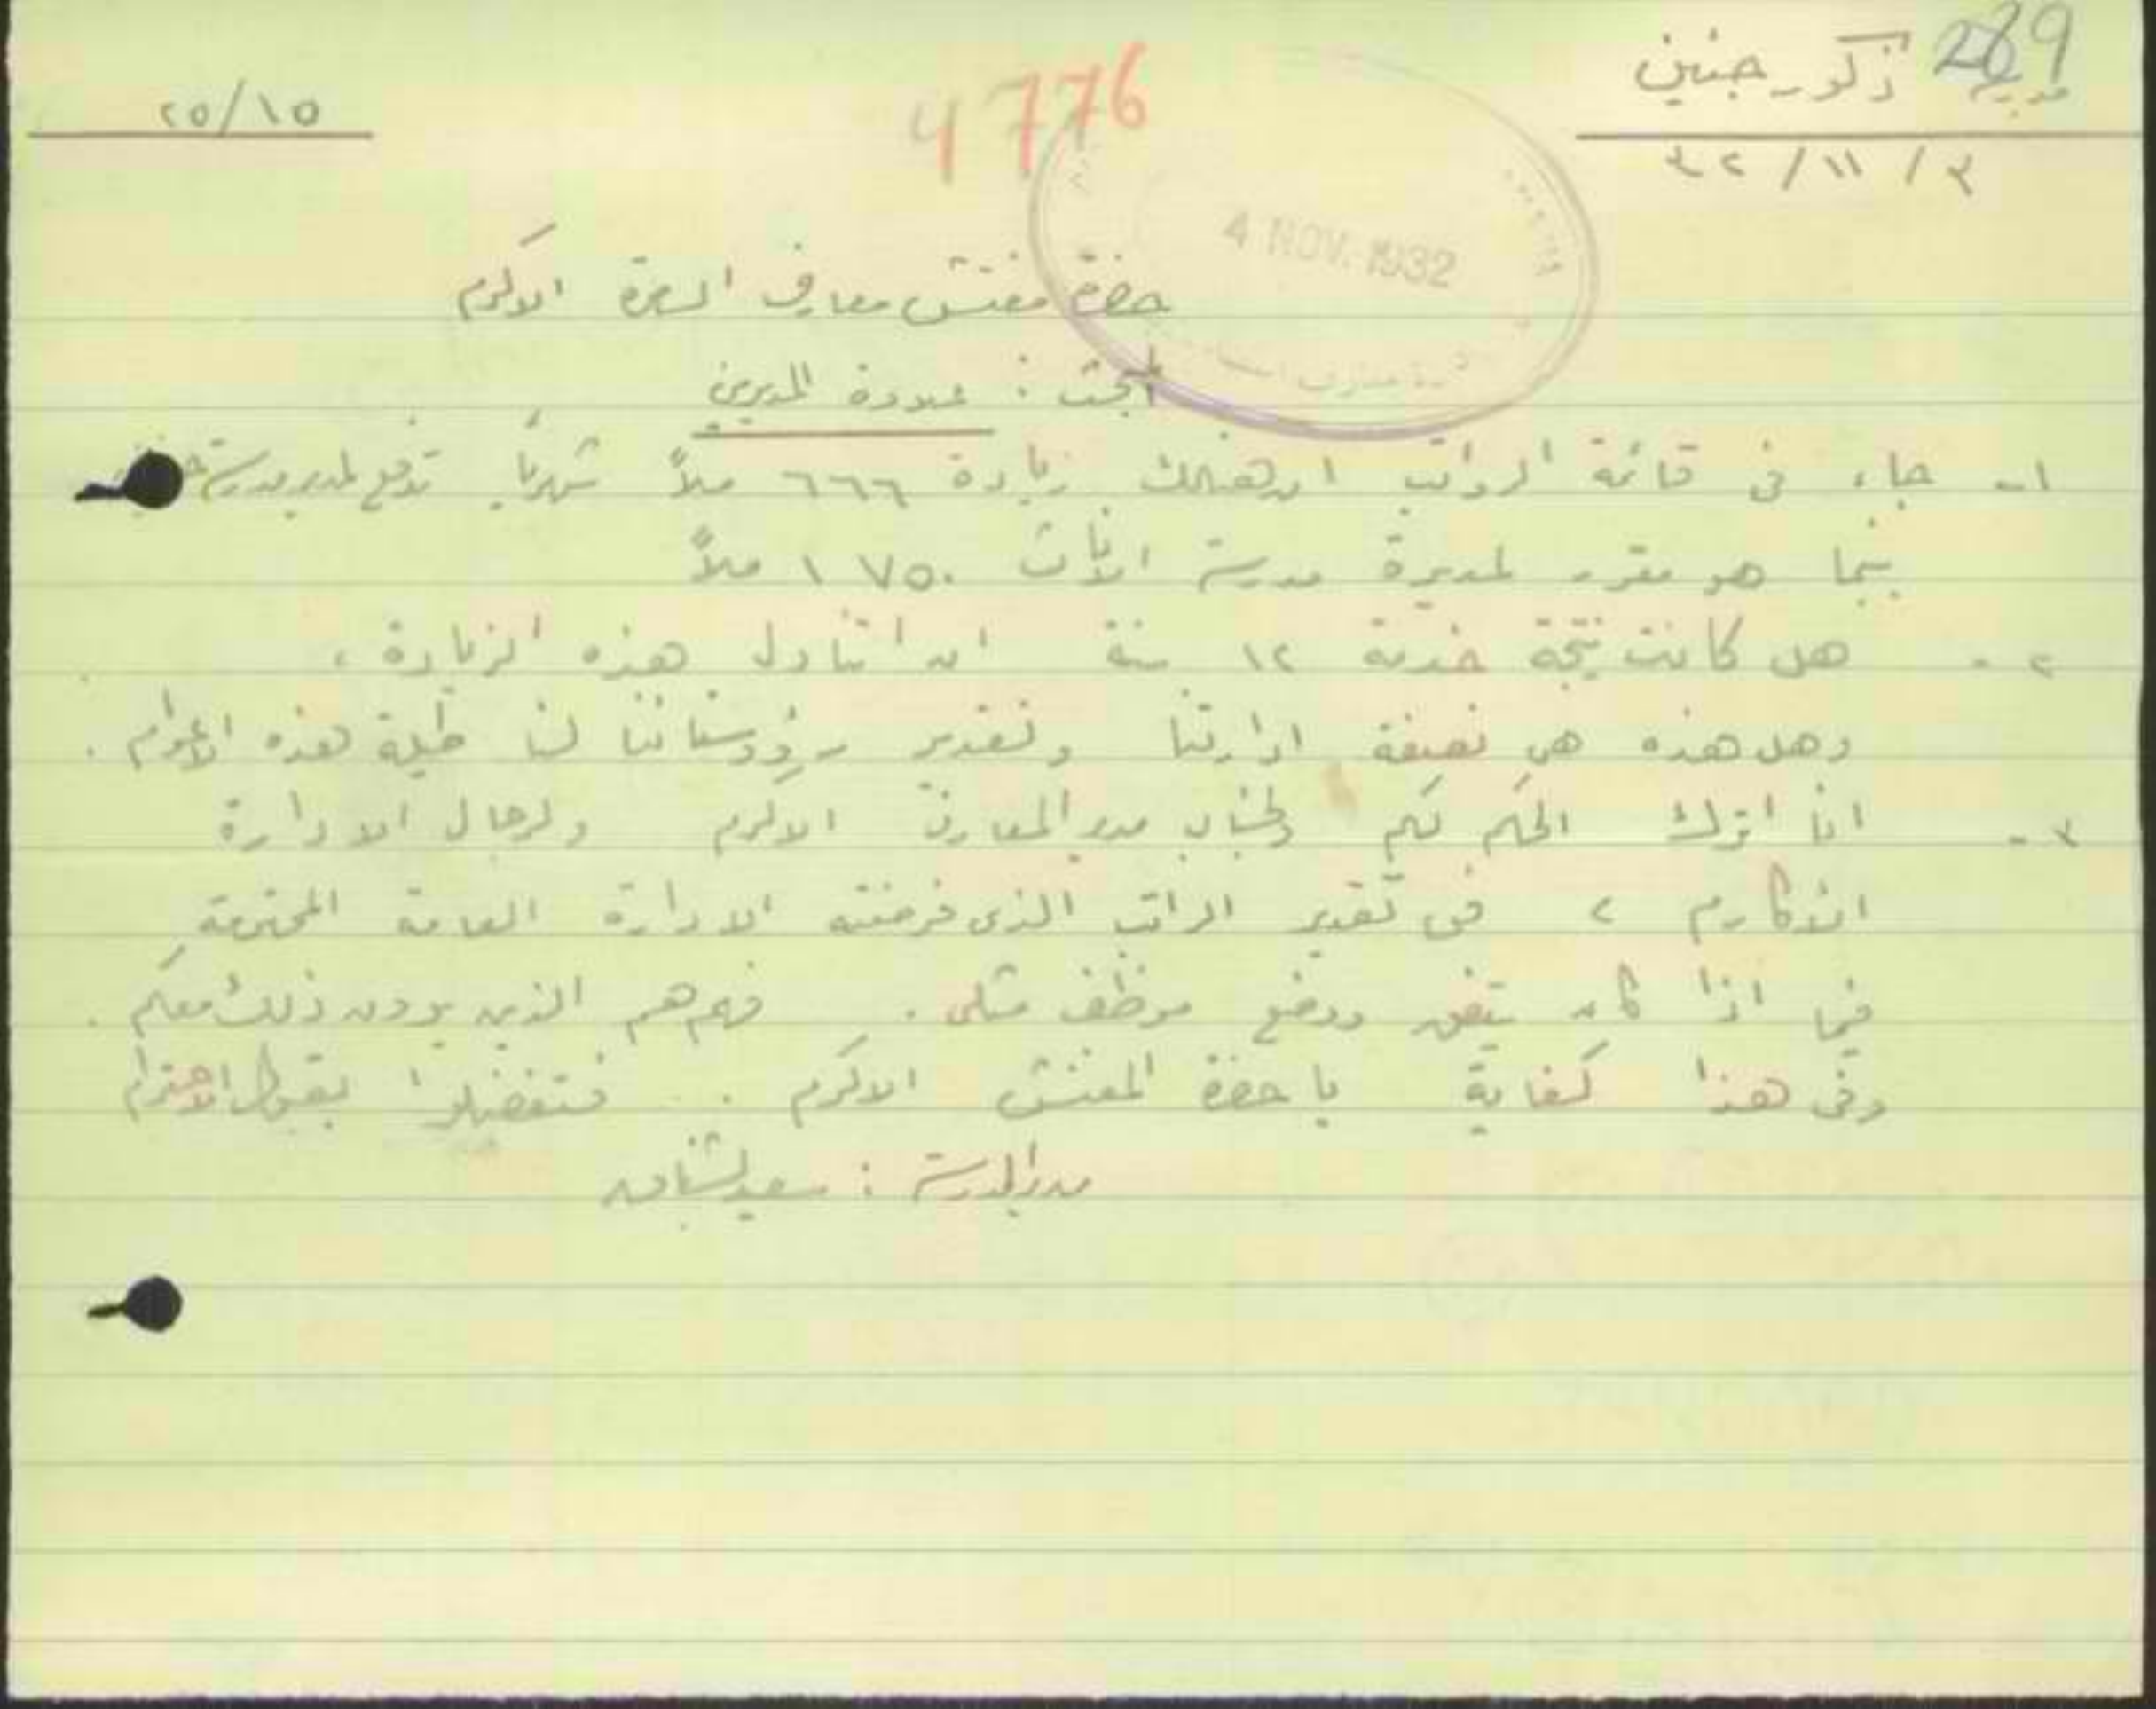 289
مدرسة ذكور جنين
٣ / ١١ / ٣٢
٢٥/١٥
4776
4 NOV. 1932
حضرة مفتش معارف السامرة الاكرم
البحث : علاوة المديرين
١- جاء في قائمة الرواتب ان هنالك زيادة ٦٦٦ ملاً شهريًا تدفع لمدير مدرسة
بينما هو مقرر لمديرة مدرسة الاناث ١٧٥٠ ملاً
٢- هل كانت نتيجة خدمة ١٢ سنة ان اتناول هذه الزيادة ،
وهل هذه هي نصفة ادارتنا وتقدير رؤوسائنا لنا طيلة هذه الاعوام .
٣- انا اترك الحكم لكم ولجناب مدير المعارف الاكرم ولرجال الادارة
الأكارم ، في تقدير الراتب الذي فرضته الادارة العامة المحترمة
فيما اذا كان يتفق ووضع موظف مثلي . فهم هم الذين يرون ذلك معكم .
وفي هذا كفاية يا حضرة المفتش الاكرم . فتفضلوا بقبول الاحترام
مدير المدرسة : سعيد